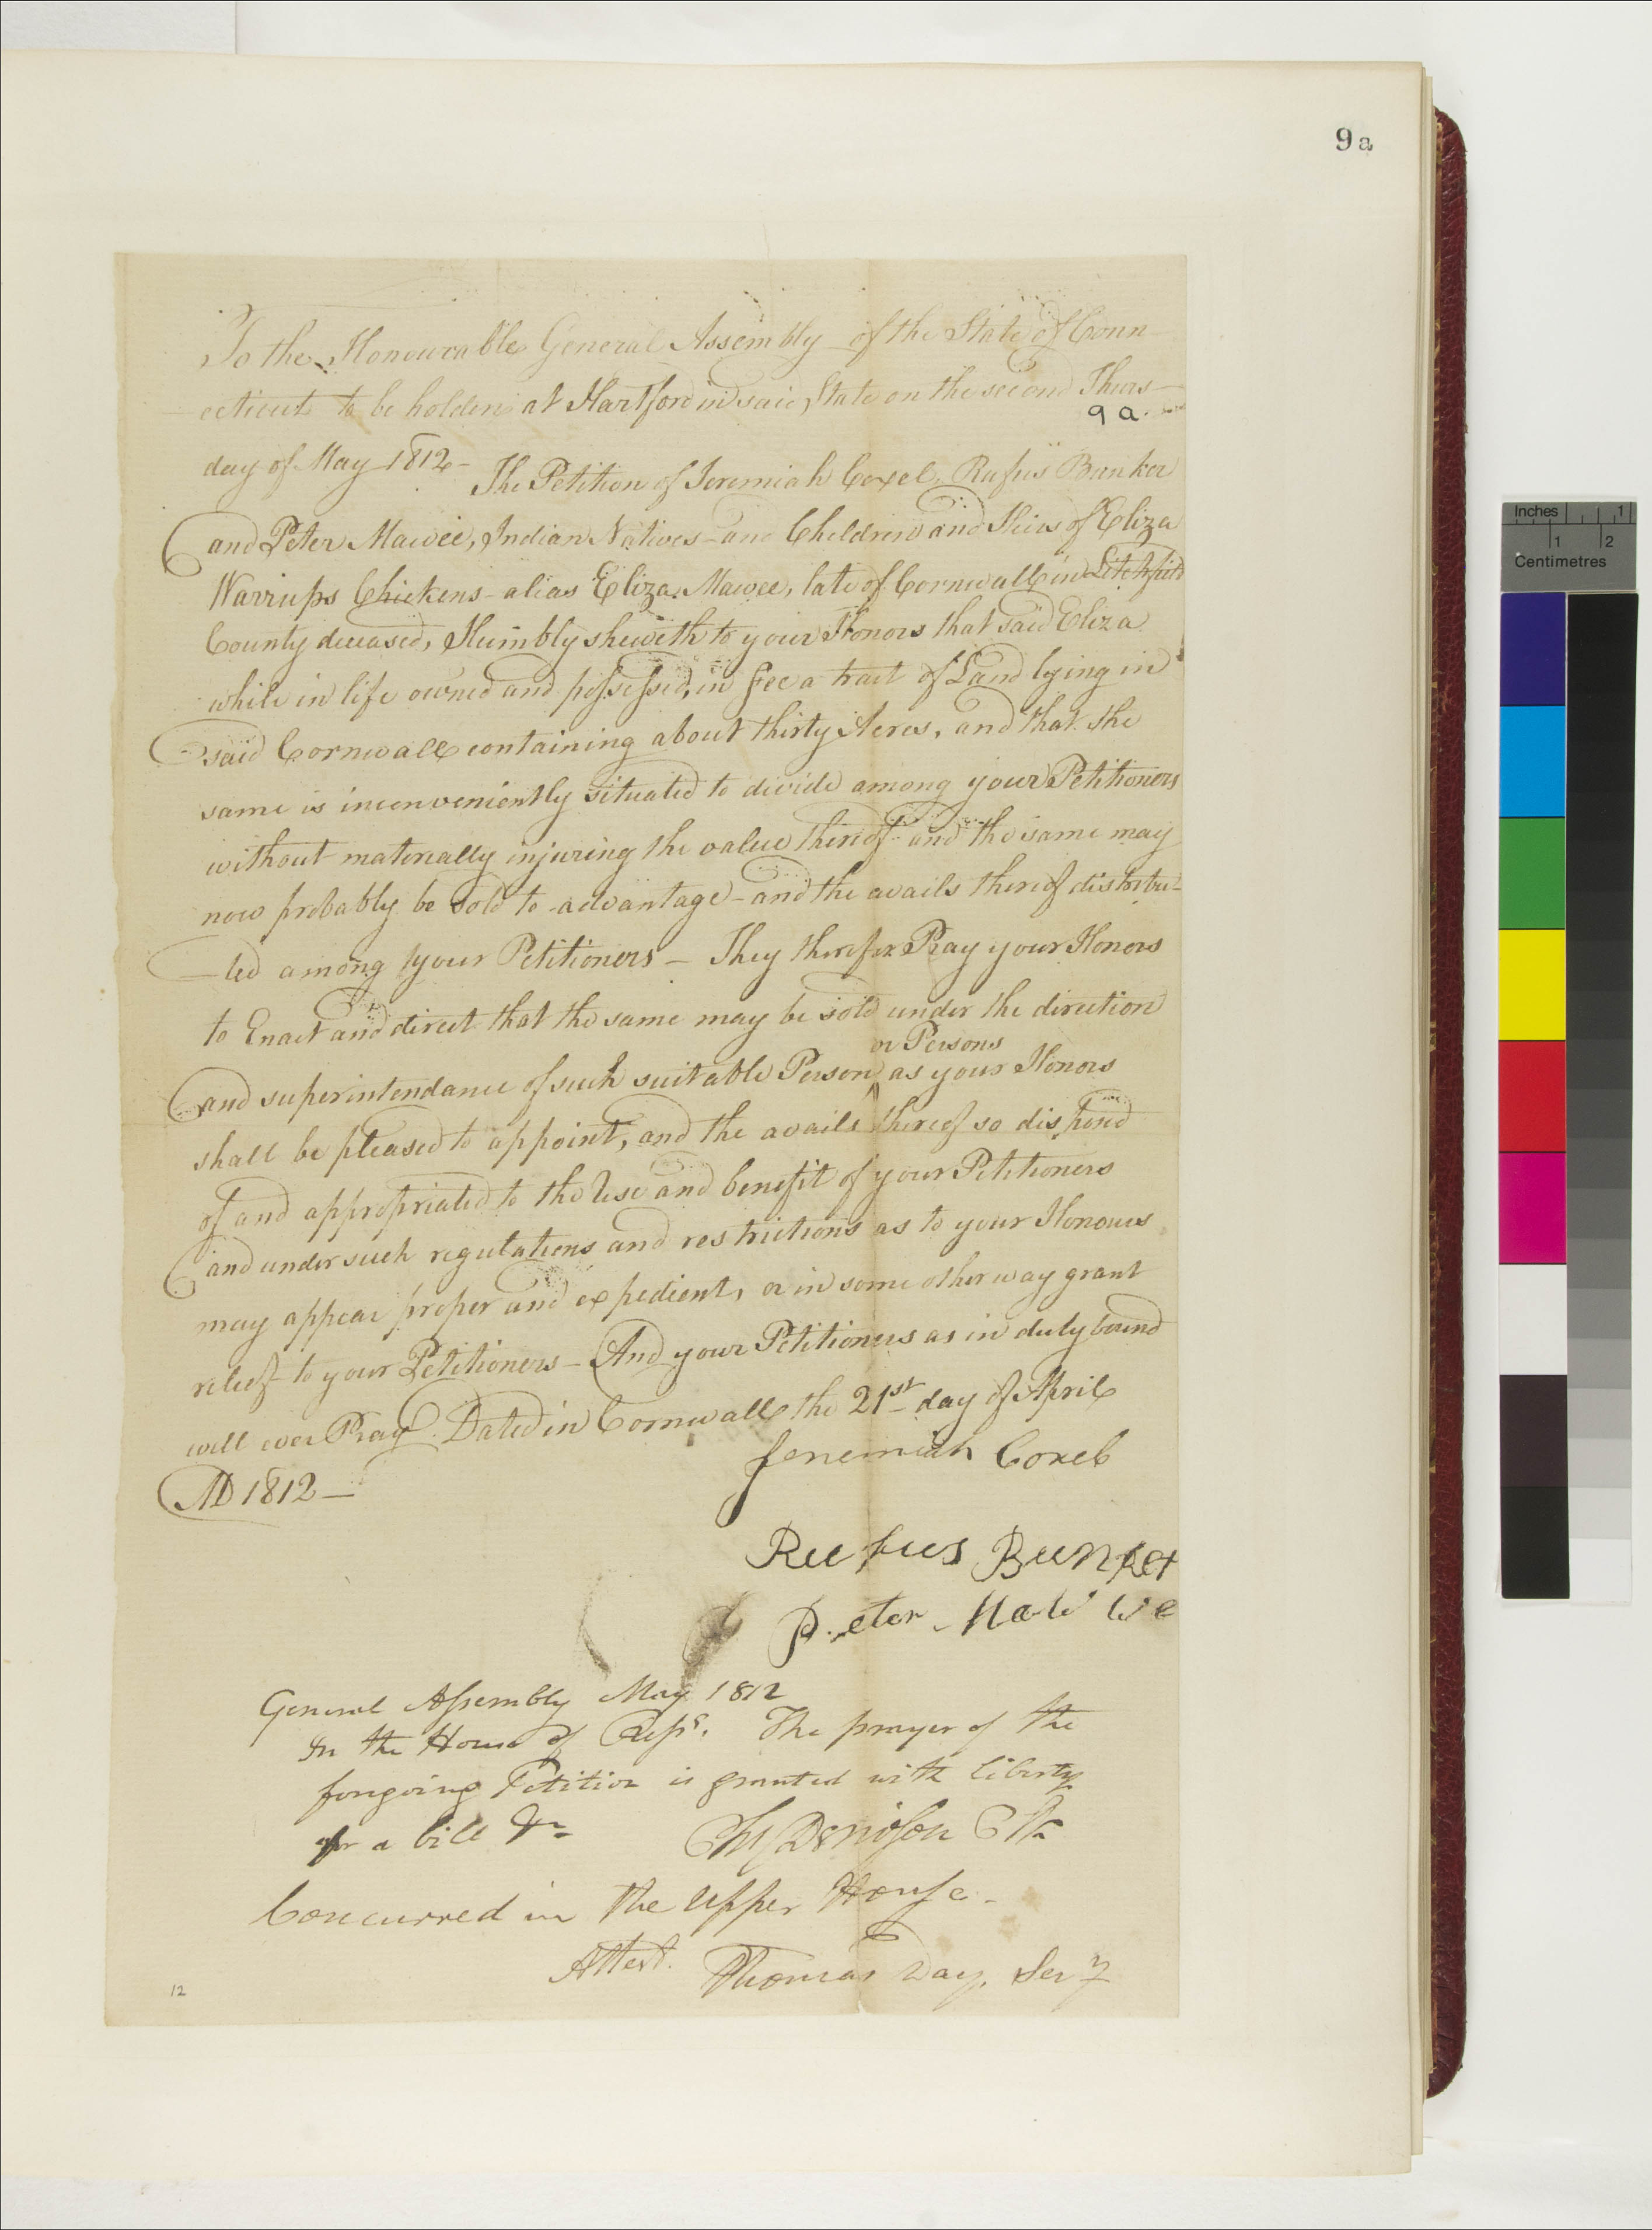 9a
To the Honourable General Assembly of the State of Conn
ecticut to be holden at Hartford in said State on the second Thurs-
9 a.
day of May 1812- The Petition of Jeremiah Coxel, Rufus Bunker
and Peter Mawee, Indian Natives - and Children and Heirs of Eliza
Warrups Chickens - alias Eliza Mawee, late of Cornwall in Litchfield
County deceased, Humbly sheweth to your Honors that said Eliza
while in life owned and possessed, in fee a tract of Land lying in
said Cornwall containing about thirty Acres, and that the
same is inconveniently situated to divide among your Petitioners
without materially injuring the value thereof and the same may
now probably be sold to advantage - and the avails thereof distribu-
-ted among your Petitioners - They therefor Pray your Honors
to Enact and direct that the same may be sold under the direction
or Persons
and superintendance of such suitable Person ^ as your Honors
shall be pleased to appoint, and the avails thereof so disposed
of and appropriated to the Use and benefit of your Petitioners
and under such regulations and restrictions as to your Honours
may appear proper and expedient, or in some other way grant
relief to your Petitioners - And your Petitioners as in duty bound
will ever Pray. Dated in Cornwall the 21st day of April
AD 1812 -
Jeremiah Coxel
Rufus Bunker
Peter Mawwe
General Assembly May 1812
In the House of Reps. The prayer of the
foregoing Petition is granted with liberty
for a bill &c
Chs Denison Clk
Concurred in the Upper House -
Attest. Thomas Day, Secy
12
Inches 1
1 2
Centimetres